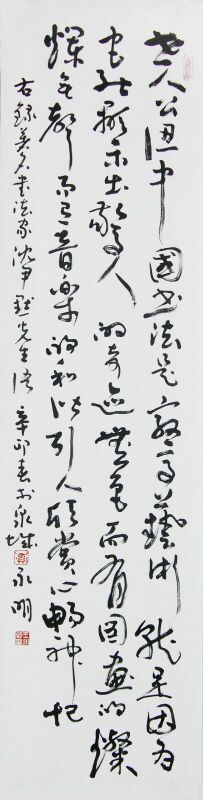 世人公认中国书法是最高艺术就是因为
它能显示出惊人的奇迹无色而有图画的灿
烂无声而有音乐的和谐引人欣赏心畅神怡
右录著名书法家沈尹默先生语辛卯春于泉城永明